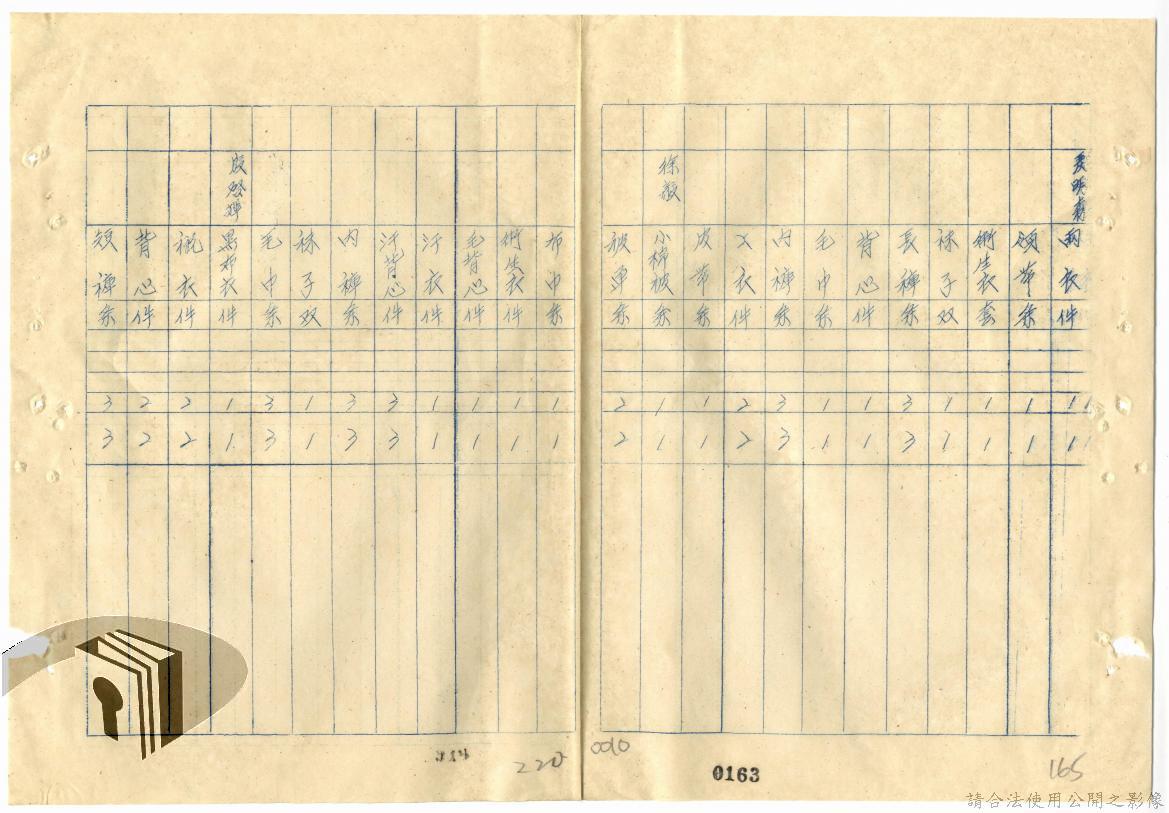 雨衣 件 1 1
頌帶 条 1 1
衛生衣 套 1 1
袜子 双 1 1
長褲 条 3 3
背心 件 1 1
毛巾 条 1 1
内褲 条 3 3
衣 件 2 2
皮帶 条 1 1
徐敏 小棉被 条 1 1
被单 条 2 2
布巾 条 1 1
衛生衣 件 1 1
毛背心 件 1 1
汗衣 件 1 1
汗背心 件 3 3
内褲 条 3 3
袜子 双 1 1
毛巾 条 3 3
黑布衣 件 1 1
衣 件 2 2
背心 件 2 2
褲 条 3 3
220
0010
0163
165
請合法使用公開之影像